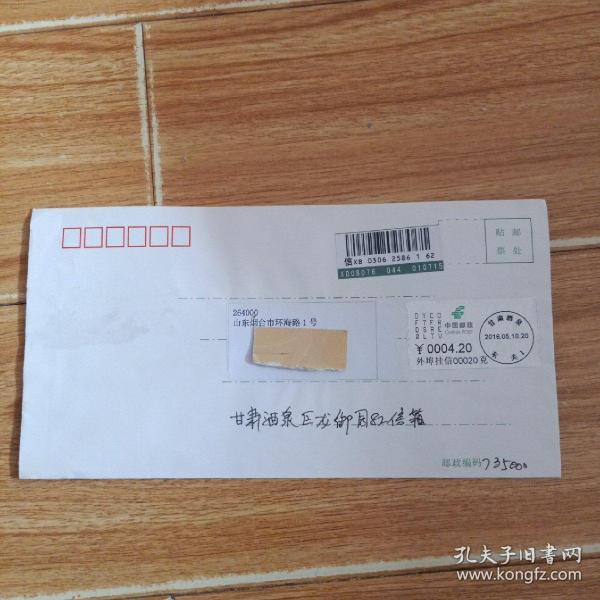 信XB 0306 2586 1 62
XD08076 044 010715
贴 邮
票 处
264000
山东烟台市环海路1号
中国邮政
CHINA POST
¥0004.20
外埠挂信00020克
甘肃酒泉
2016.05.10.20
甘肃酒泉巨龙御园82信箱
邮政编码735000
孔夫子旧书网
www.kongfz.com